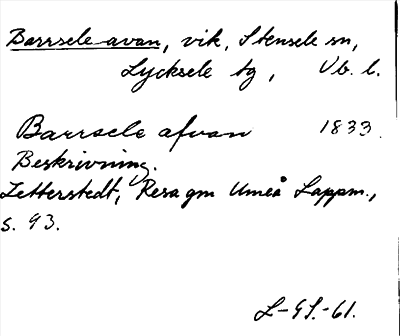 Barrsele-avan, vik, Stensele sn,
Lycksele tg, Vb. l.
Barrsele afvan 1833.
Beskrivning.
Zetterstedt, Resa gm Umeå Lappm.,
s. 93.
L-GS.-61.